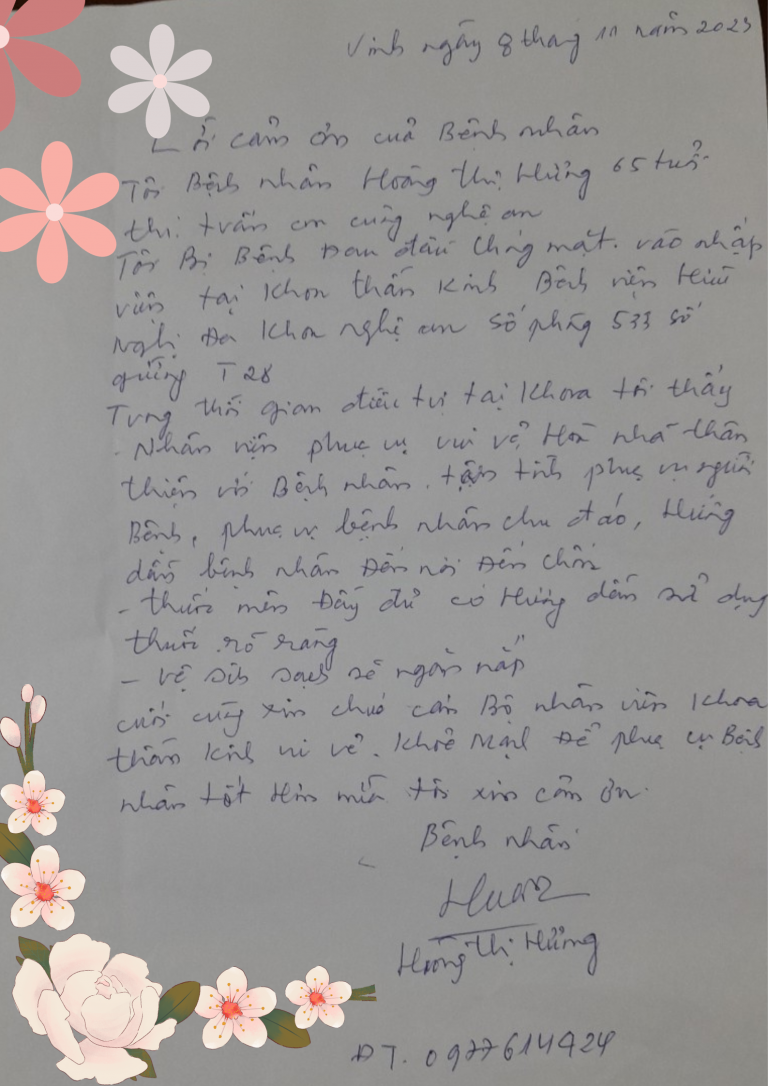 Vinh ngày 8 thang 11 năm 2023
Lời cảm ơn cuả Bệnh nhân
Tôi Bệnh nhân Hoàng Thị Hường 65 tuổi
thị trấn con cuông nghệ an
Tôi Bị Bệnh Đau đầu Chóng mặt. vào nhập
viện tại Khoa thần Kinh Bệnh viện Hữu
Nghị Đa Khoa nghệ an số phòng 533 số
giường T28
Trong thời gian điều trị tại Khoa tôi thấy
- Nhân viên phục vụ vui vẻ Hoà nhã thân
thiện với Bệnh nhân. tận tình phục vụ người
Bệnh, phục vụ bệnh nhân chu đáo, Hướng
dẫn bệnh nhân Đến nơi Đến chốn
- thuốc men Đầy đủ có Hướng dẫn sử dụng
thuốc rõ ràng
- vệ sinh sạch sẽ ngăn nắp
cuối cùng xin chúc cán Bộ nhân viên Khoa
thần Kinh vui vẻ. Khoẻ Mạnh Để phục vụ Bệnh
nhân tốt Hơn nữa tôi xin cảm ơn.
Bệnh nhân
Hoàng Thị Hường
ĐT. 0977614424